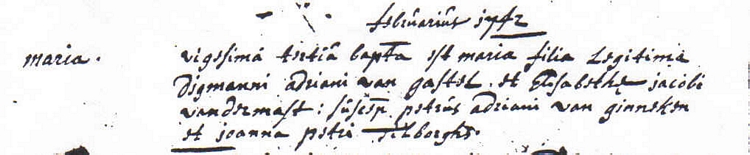 februarius 1742
maria. vigesima tertia bapta est maria filia Legitima
Digmanni adriani van gastel. et Elisabethę jacobi
vandermast: suscep. petrus adriani van ginneken
et joanna petri Tilborghs.